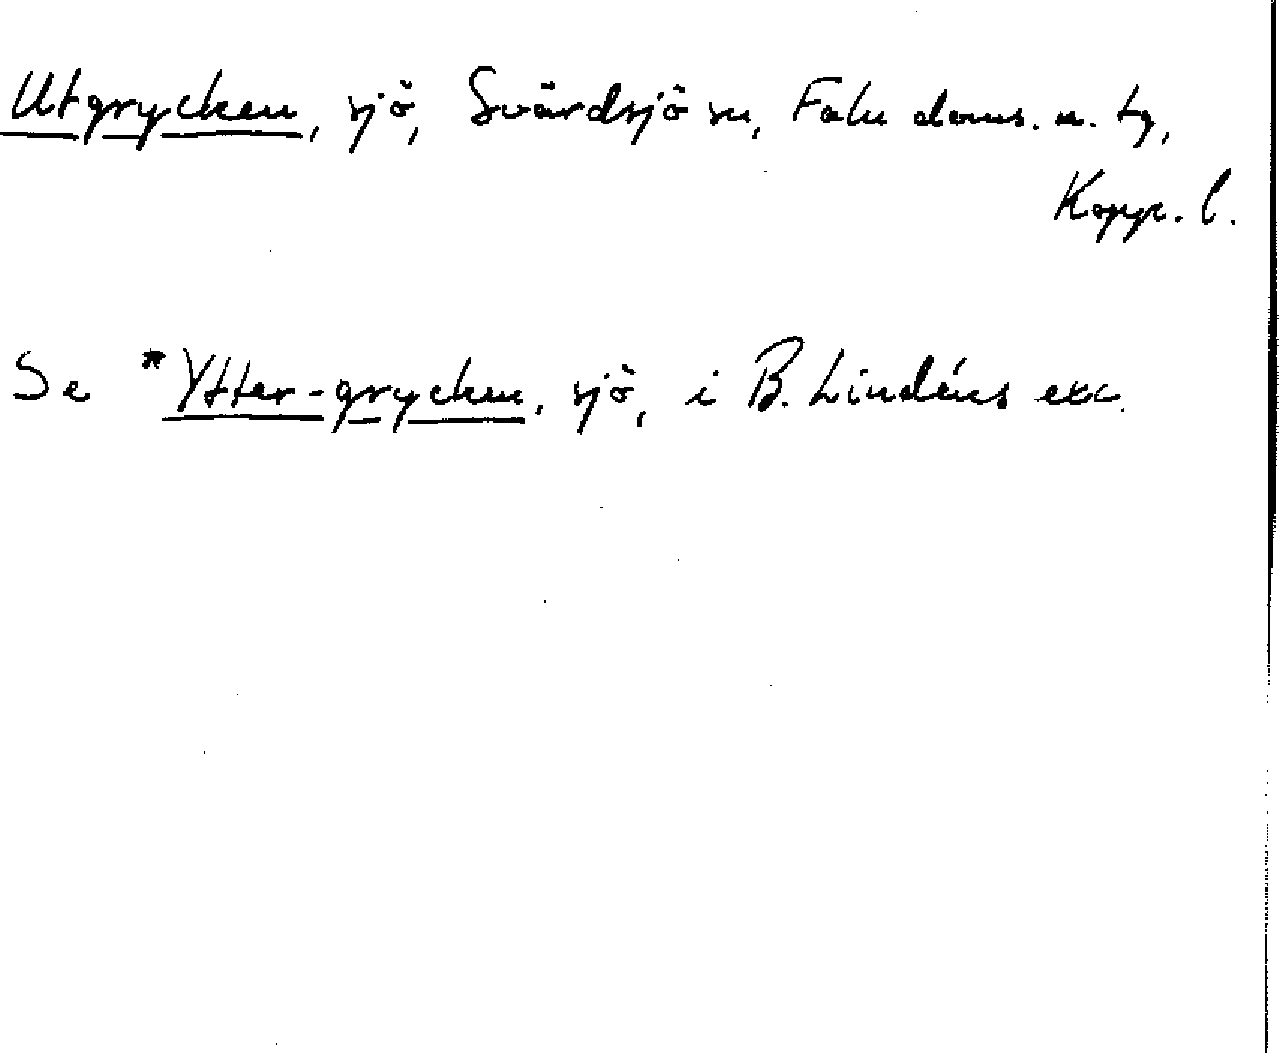 Utgrycken, sjö, Svärdsjö sn, Falu doms. n. tg,
Kopp. l.
Se *Ytter-grycken, sjö, i B. Lindéns exc.